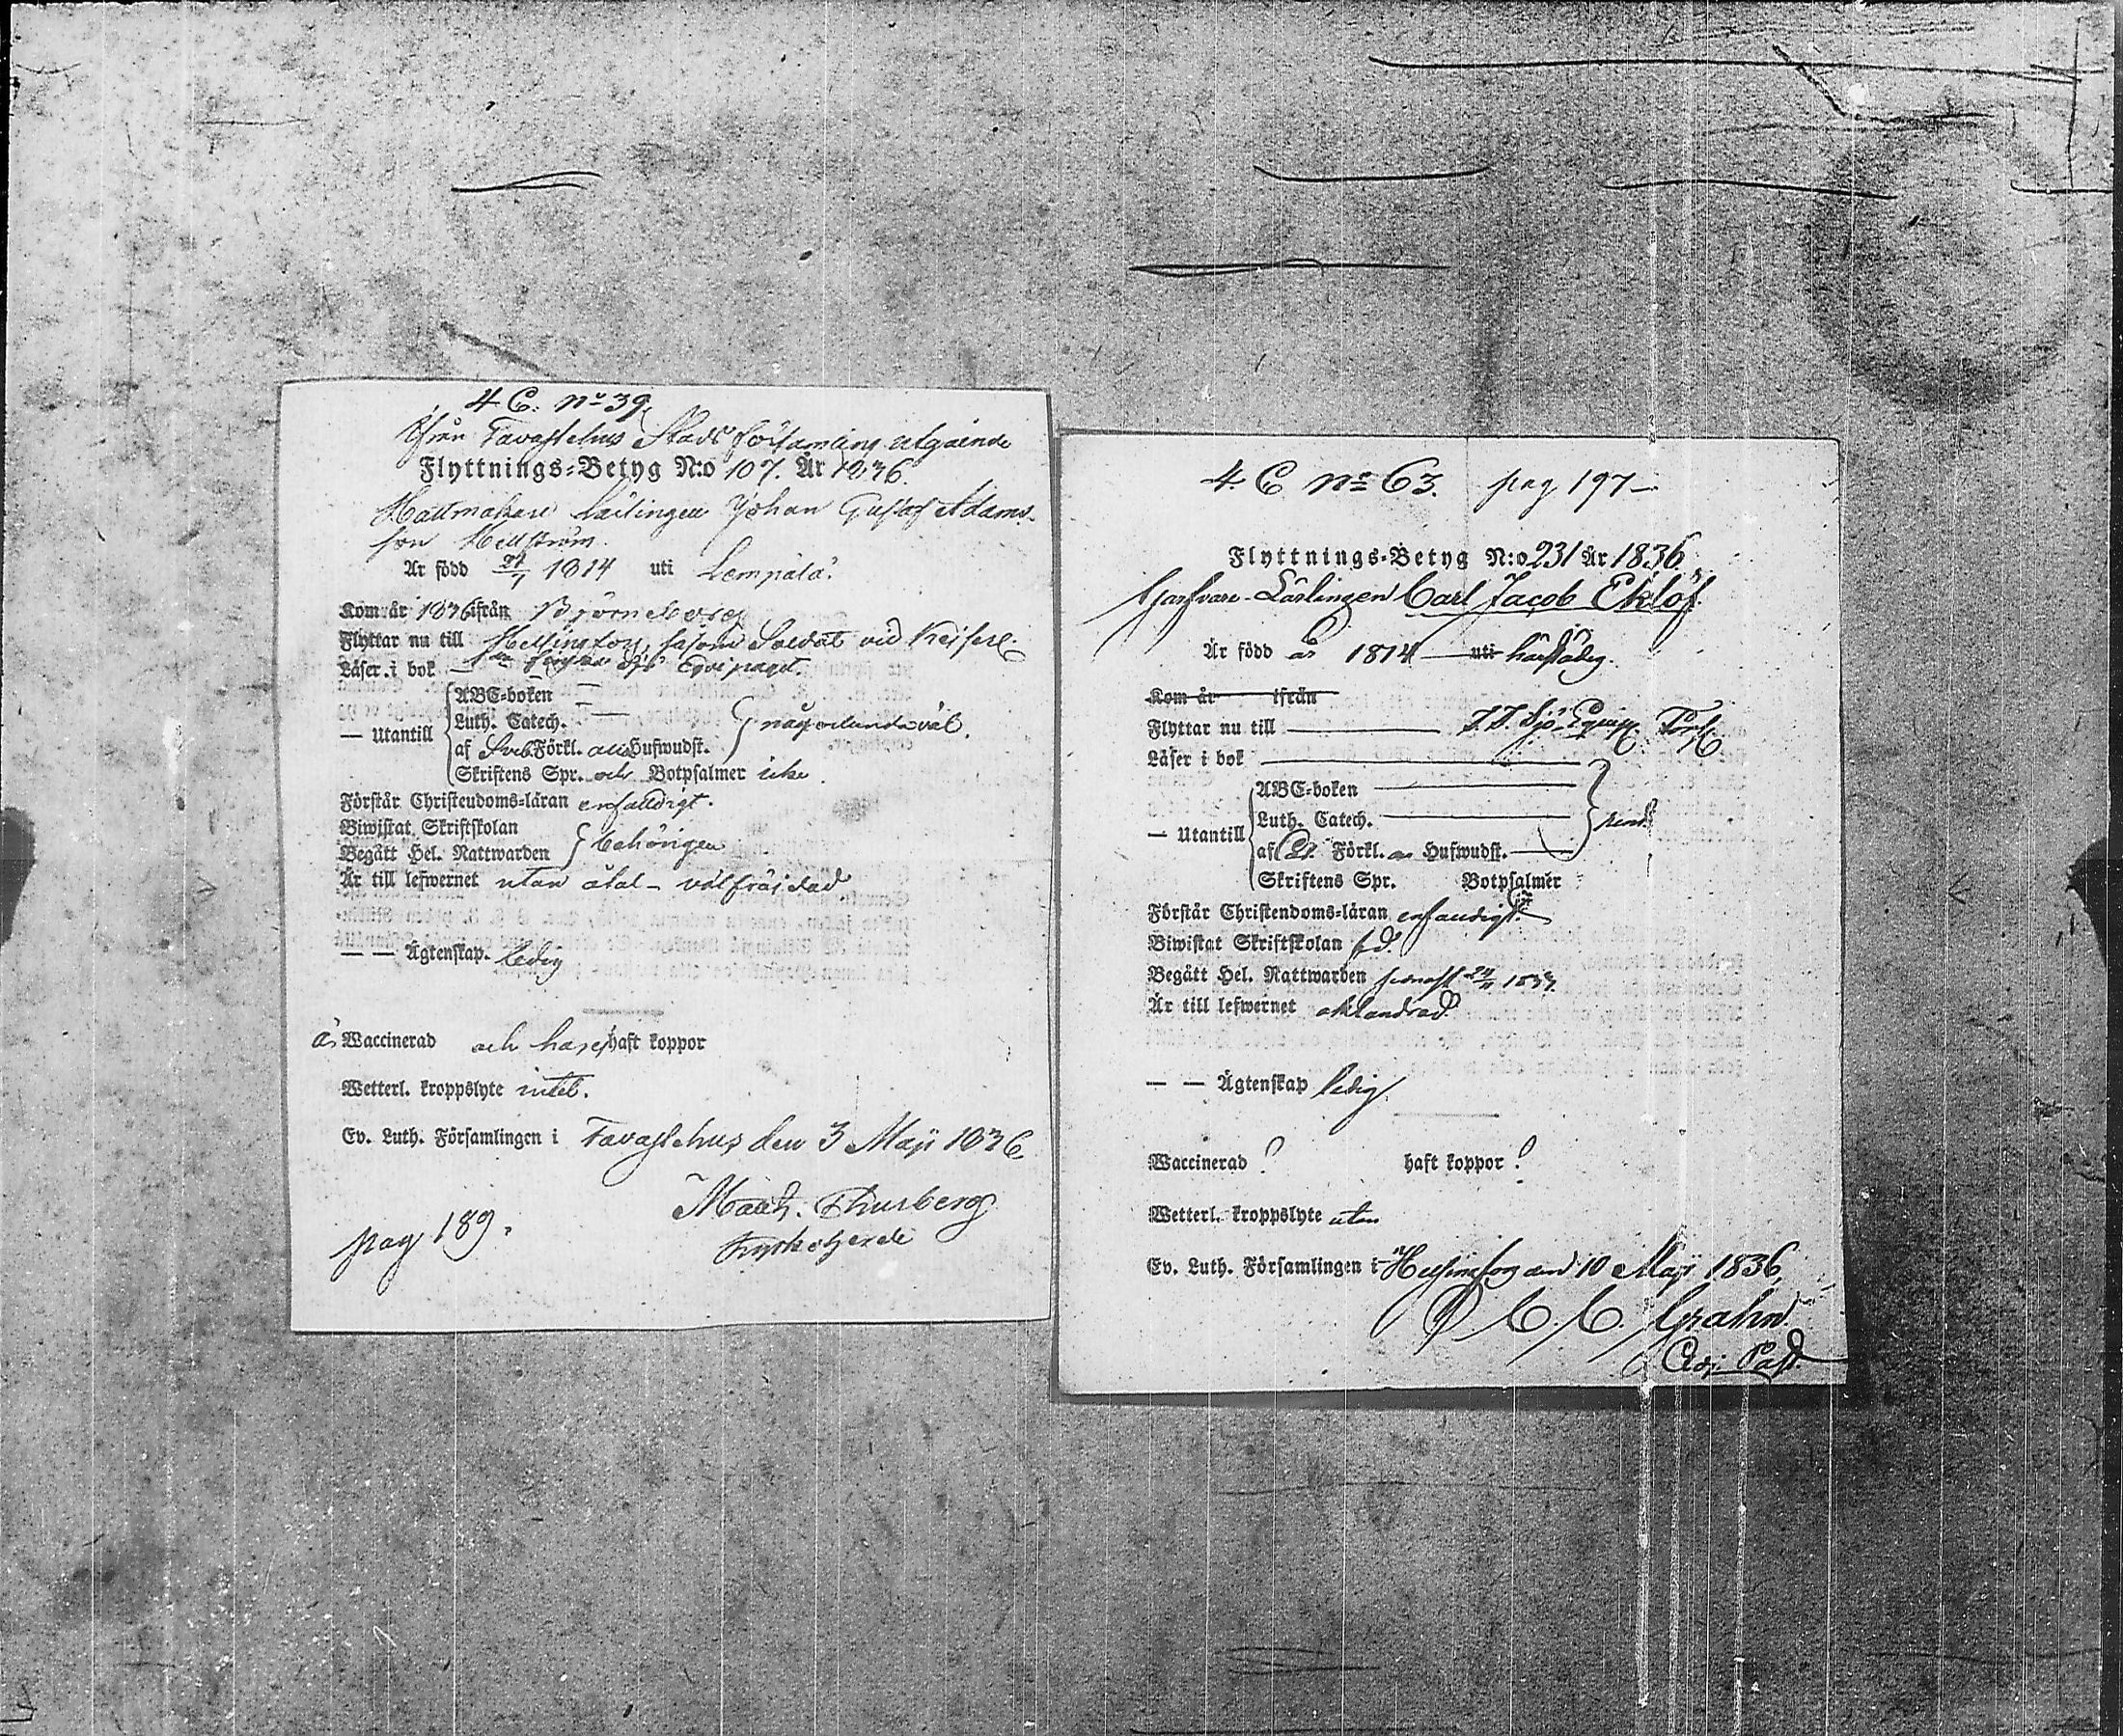 4 C. No 39.
Ifrån Tavastehus Stads församling utgående
Flyttnings-Betyg N:o 107. År 1836.
Hattmakare Lärlingen Johan Gustaf Adams-
son Hellström.
Är född 31/1 1814 uti Lempälä.
Kom år 1836 ifrån Björneborg
Flyttar nu till Helsingfors, såsom Soldat vid Keiserl.
Läser i bok — Equipaget.
ABC-boken —
Luth. Catech. — någorlunda väl.
— Utantill
af Sveb. Förkl. Hufwudst.
Skriftens Spr. och Botpsalmer icke.
Förstår Christendoms-läran enfaldigt.
Biwistat Skriftskolan
Begått Hel. Nattwarden behörigen
Är till lefwernet utan åtal – välfräjdad
— — Ägtenskap. ledig
är Waccinerad och har ej haft koppor
Wetterl. kroppslyte intet.
Ev. Luth. Församlingen i Tavastehus den 3 Maji 1836
Thurberg
Kyrkoherde
pag 189.
4 C No 63. pag 197 –
Flyttnings-Betyg N:o 231 År 1836
Garfvare-Lärlingen Carl Jacob Eklöf.
Är född år 1814 — uti härstädes.
Kom år ifrån
Flyttar nu till — Sjö-Equip.
Läser i bok —
ABC-boken —
Luth. Catech. —
— Utantill
af Förkl. Hufwudst. —
Skriftens Spr. Botpsalmer
Förstår Christendoms-läran enfaldigt.
Biwistat Skriftskolan
Begått Hel. Nattwarden senast
Är till lefwernet oklandrad
— — Ägtenskap ledig
Waccinerad ? haft koppor ?
Wetterl. kroppslyte utan
Ev. Luth. Församlingen i Helsingfors den 10 Maji 1836,
C. C. Grahn.
Adj. Past.